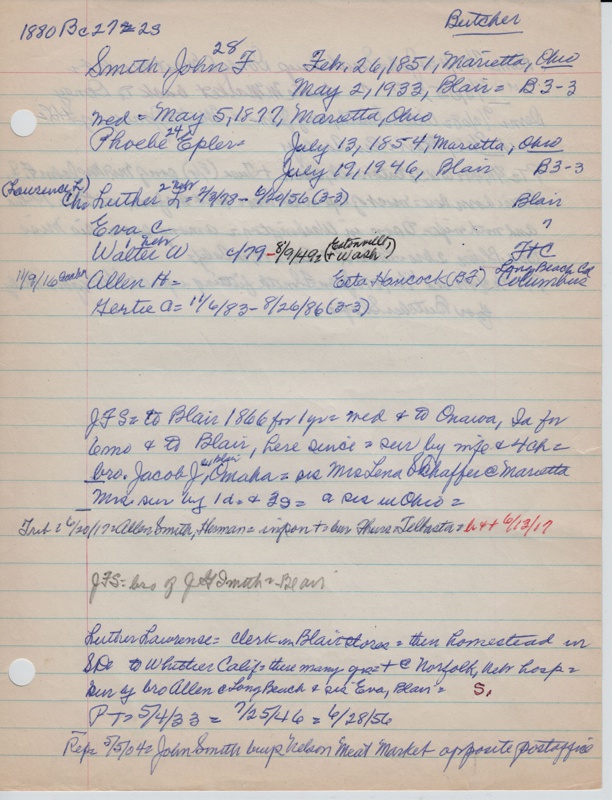 Butcher
1880 Bc 27 = 23
28
Smith, John F Feb. 26, 1851, Marietta, Ohio
May 2, 1933, Blair = B3-3
med = May 5, 1877, Marietta, Ohio
24
Phoebe Epler = July 13, 1854, Marietta, Ohio
July 19, 1946, Blair B3-3
(Lawrence L) 2 Nebr
Ch = Luther L = 2/3/78 - 6/20/56 (3-3) Blair
Eva C ?
1 Nebr
Walter W c/79 - 8/9/49 = (Eatonville, + Wash) F+C
Long Beach Cal
11/9/16 Omaha Allen H = Esta Hancock (BF) Columbus
Gertie A = 11/6/83 - 8/26/86 (3-3)
JFS = to Blair 1866 for 1 yr = med + to Onawa, Ia for
6 mo + to Blair, here since = sur by wife + 4 ch =
bro. Jacob J, Omaha = sis Mrs Lena Schaffer @ Marietta
Mrs. sur by 1 d. + 3 s = a sis in Ohio =
Trib = 6/20/17 = Allen Smith, Herman = + bur Thurs = Telbasta = 6/13/17
JFS = bro of J Smith = Blair
Luther Lawrense = clerk in Blair stores = then homestead in
SD = to Whittier Calif = then many yrs = + @ Norfolk, Nebr hosp =
sur by bro Allen @ Long Beach + sis Eva, Blair = S.
P T = 5/4/33 = 7/25/46 = 6/28/56
Rep = 5/5/04 = John Smith buys Nelson Meat Market opposite postoffice